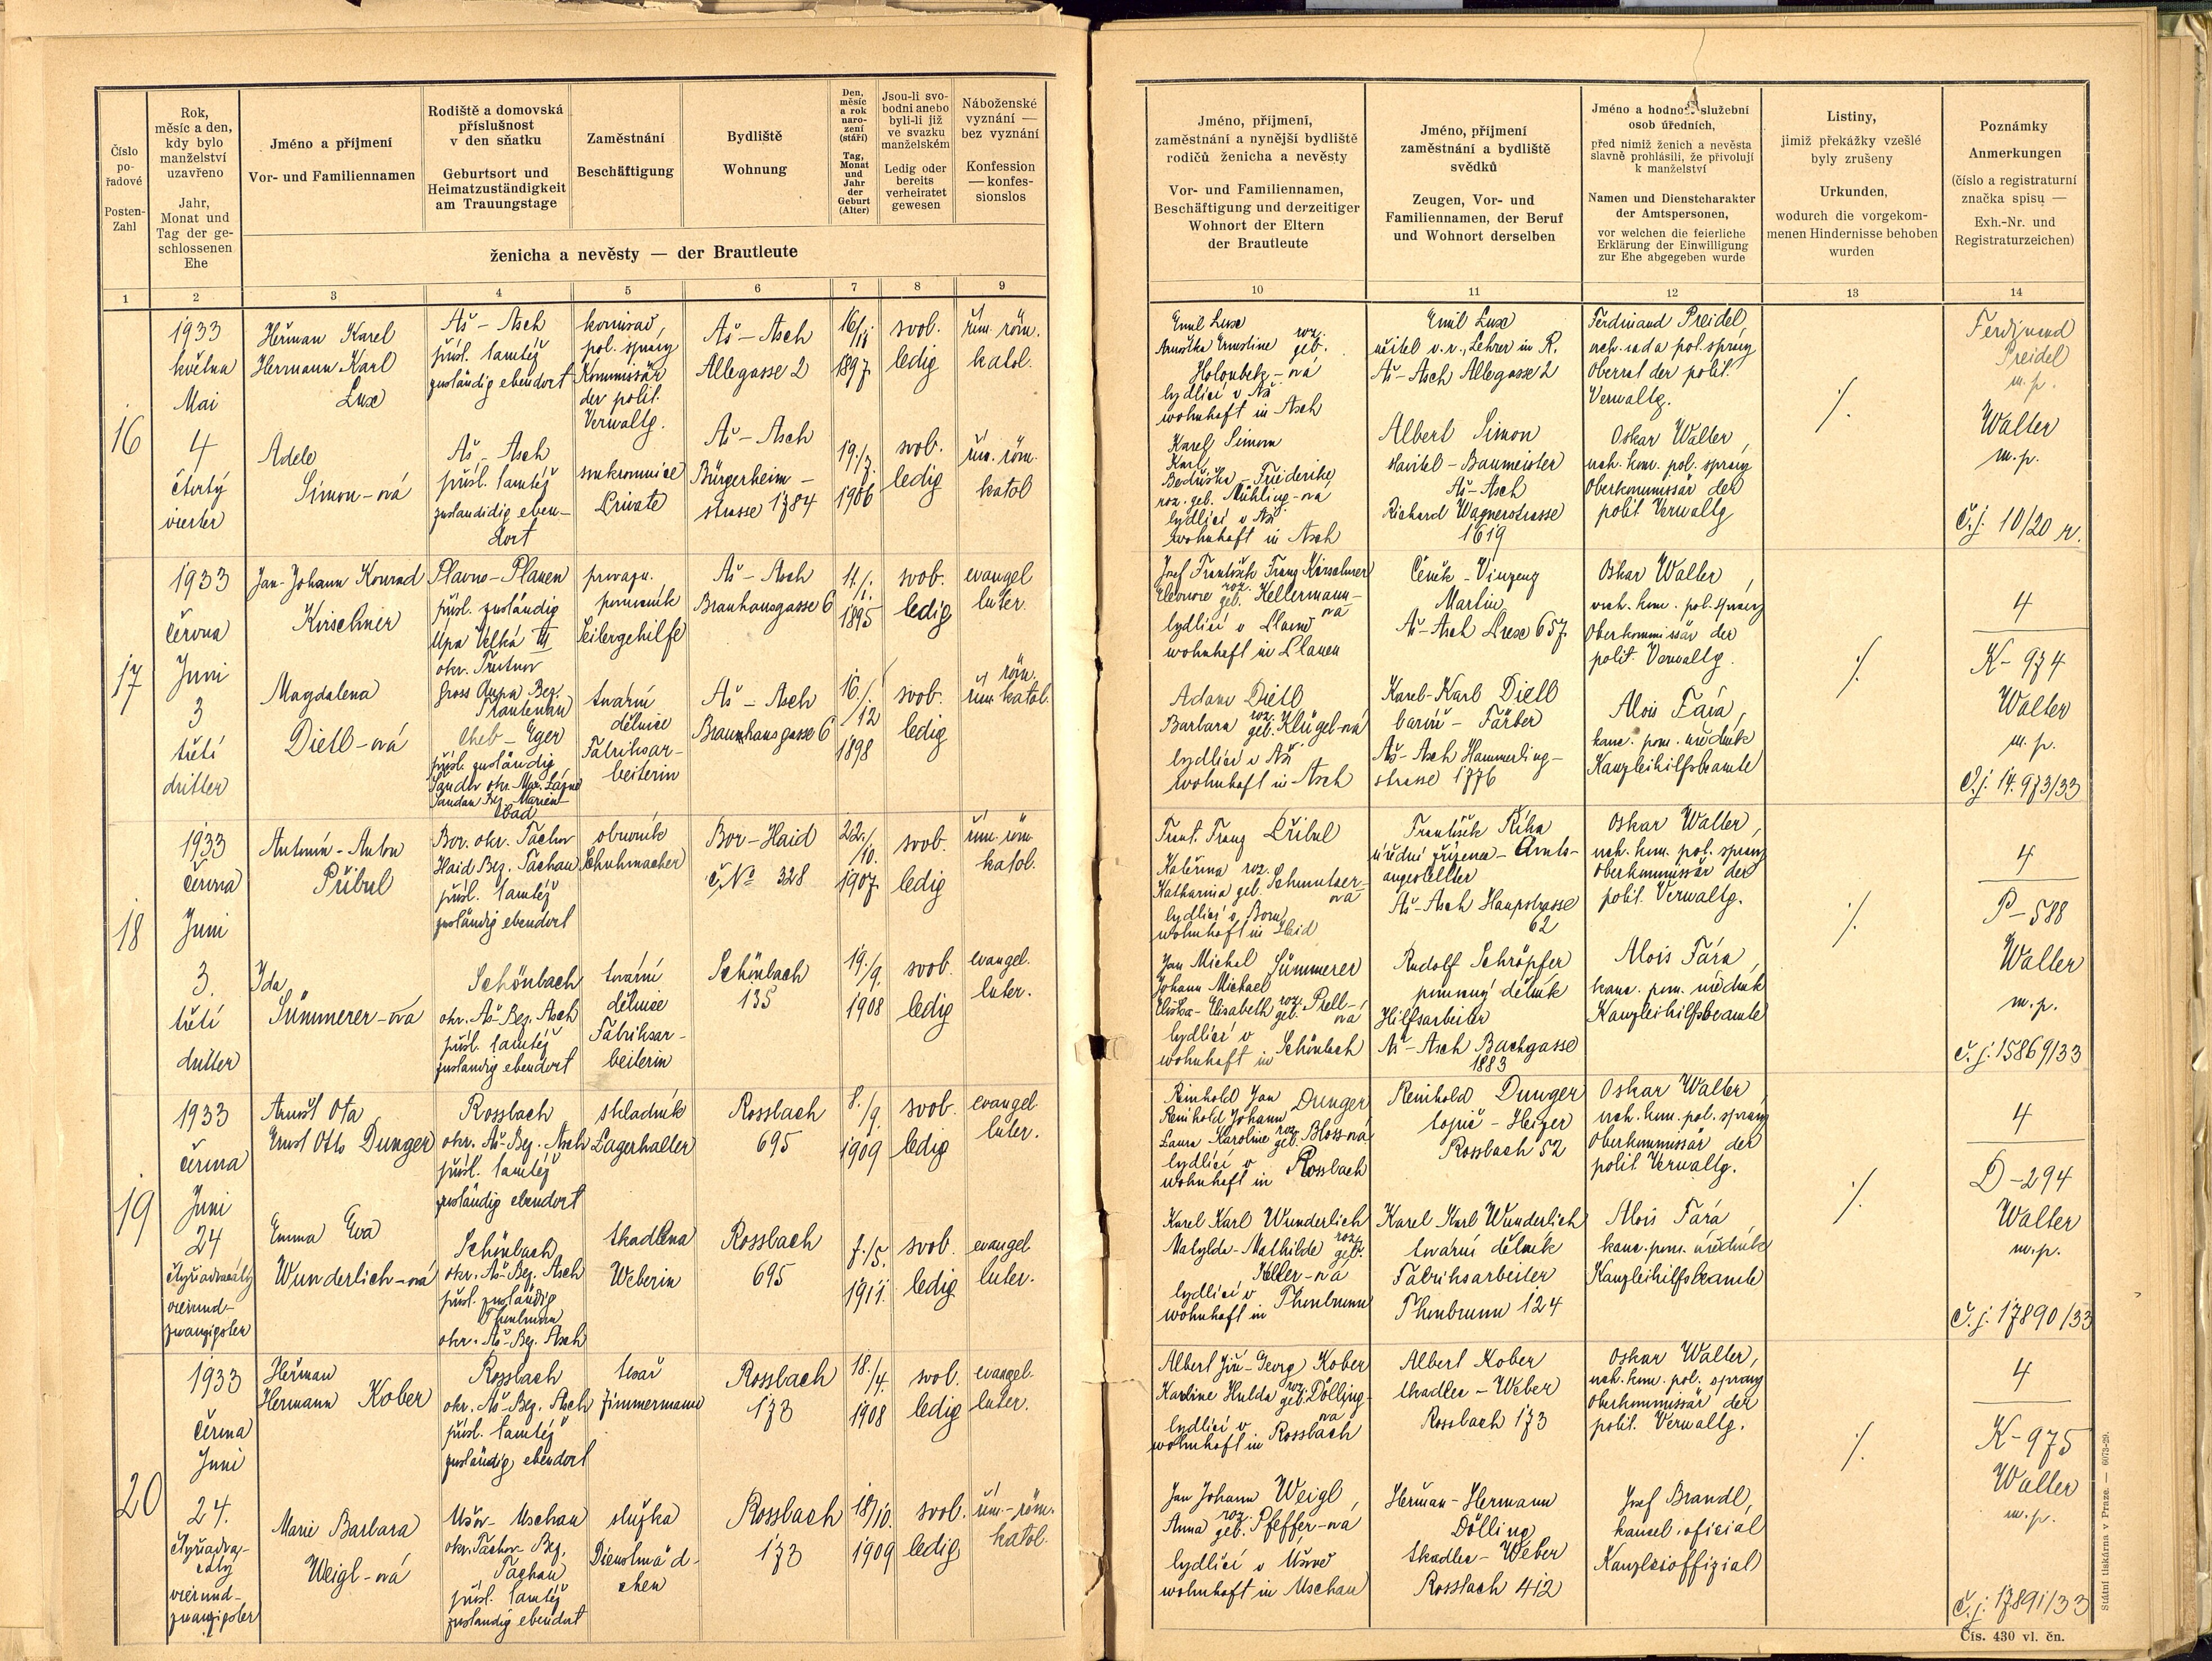 Číslo pořadové
Posten-Zahl
Rok, měsíc a den, kdy bylo manželství uzavřeno
Jahr, Monat und Tag der geschlossenen Ehe
Jméno a příjmení
Vor- und Familiennamen
Rodiště a domovská příslušnost v den sňatku
Geburtsort und Heimatzuständigkeit am Trauungstage
Zaměstnání
Beschäftigung
Bydliště
Wohnung
Den, měsíc a rok narození (stáří)
Tag, Monat und Jahr der Geburt (Alter)
Jsou-li svobodni anebo byli-li již ve svazku manželském
Ledig oder bereits verheiratet gewesen
Náboženské vyznání — bez vyznání
Konfession — konfessionslos
ženicha a nevěsty — der Brautleute
Jméno, příjmení, zaměstnání a nynější bydliště rodičů ženicha a nevěsty
Vor- und Familiennamen, Beschäftigung und derzeitiger Wohnort der Eltern der Brautleute
Jméno, příjmení zaměstnání a bydliště svědků
Zeugen, Vor- und Familiennamen, der Beruf und Wohnort derselben
Jméno a služební osob úředních,
před nimiž ženich a nevěsta slavně prohlásili, že přivolují k manželství
Namen und Dienstcharakter der Amtspersonen,
vor welchen die feierliche Erklärung der Einwilligung zur Ehe abgegeben wurde
Listiny,
jimiž překážky vzešlé byly zrušeny
Urkunden,
wodurch die vorgekommenen Hindernisse behoben wurden
Poznámky
Anmerkungen
(číslo a registraturní značka spisu —
Exh.-Nr. und Registraturzeichen)
1 2 3 4 5 6 7 8 9 10 11 12 13 14
16
1933
května
Mai
4
čtvrtý
vierter
Heřman Karel
Herrmann Karl
Lux
Aš - Asch
přísl. tamtéž
zuständig ebendort
komisař,
pol. správy
Kommissär
der polit.
Verwaltg.
Aš - Asch
Allegasse 2
1897
svob.
ledig
řím. röm.
katol.
Emil Lux
Arnoštka Ernestine roz. geb.
Holoubek-ová
bydlící v Aši
wohnhaft in Asch
Emil Lux
učitel v. v., Lehrer in R.
Aš-Asch Allegasse 2
Ferdinand Preidel,
vrch. rada pol. správy
Oberrat der polit.
Verwaltg.
Ferdinand
Preidel
m. p.
Adele
Simon-ová
Aš - Asch
přísl. tamtéž
zuständig eben-
dort
soukromnice
Private
Aš - Asch
Bürgerheim-
strasse 1784
19./7.
1906
svob.
ledig
řím. röm.
katol
Karel Simon
Karl
Bedřiška - Friederike
roz. geb. Mühling-ová
bydlící v Aši
wohnhaft in Asch
Albert Simon
stavitel - Baumeister
Aš-Asch
Richard Wagnerstrasse
1619
Oskar Walter,
vrch. kom. pol. správy
Oberkommissär der
polit Verwaltg
Walter
m. p.
Č. j. 10/20 r.
17
1933
června
Juni
3
třetí
dritter
Jan-Johann Konrad
Kirschner
Plavno-Plauen
přísl. zuständig
Úpa Velká III
okr. Trutnov
Gross Aupa Bez.
Trautenau
provazn.
pomocník
Seilergehilfe
Aš - Asch
Brauhausgasse 6
11./1.
1895
svob.
ledig
evangel
luter.
Josef František Franz Kirschner
Eleonore roz. geb. Kellermann-ová
bydlící v Plavně
wohnhaft in Plauen
Čeněk - Vinzenz
Martin
Aš-Asch 657
Oskar Walter,
vrch. kom. pol. správy
Oberkommissär der
polit. Verwaltg.
4
K-974
Magdalena
Dietl-ová
Cheb - Eger
přísl. zuständig
Žandov okr. Mar. Lázně
Sandau Bez. Marien-
bad
tovární
dělnice
Fabriksar-
beiterin
Aš - Asch
Brauhausgasse 6
16./12
1898
svob.
ledig
řím. röm. katol.
Adam Dietl
Barbara roz. geb. Klügel-ová
bydlící v Aši
wohnhaft in Asch
Karel-Karl Dietl
barvíř - Färber
Aš-Asch Hammerling-
strasse 1776
Alois Fára,
kanc. pom. úředník
Kanzleihilfsbeamte
Walter
m. p.
Č. j. 14.973/33
18
1933
června
Juni
3.
třetí
dritter
Antonín - Anton
Přibyl
Bor. okr. Tachov
Haid Bez. Tachau
přísl. tamtéž
zuständig ebendort
obuvník
Schuhmacher
Bor - Haid
č. No 328
22./10.
1907
svob.
ledig
řím. röm.
katol.
Frant. Franz Přibyl
Kateřina roz.
Katharina geb. Schmutzer-ová
bydlící v Boru
wohnhaft in Haid
František Říha
úřední zřízenec - Amts-
angestellter
Aš-Asch Haupstrasse
62
Oskar Walter,
vrch. kom. pol. správy
Oberkommissär der
polit. Verwaltg.
4
P-588
Ida
Sümmerer-ová
Schönbach
okr. Aš-Bez. Asch
přísl. tamtéž
zuständig ebendort
tovární
dělnice
Fabriksar-
beiterin
Schönbach
135
19./9.
1908
svob.
ledig
evangel.
luter.
Jan Michal Sümmerer
Johann Michael
Eliška - Elisabeth roz. geb. Prell-ová
bydlící v
wohnhaft in Schönbach
Rudolf Schröpfer
pomocný dělník
Hilfsarbeiter
Aš-Asch Bachgasse
1883
Alois Fára,
kanc. pom. úředník
Kanzleihilfsbeamte
Walter
m. p.
č. j. 15869/33
19
1933
června
Juni
24
čtyřiadvacátý
vierund-
zwanzigster
Arnošt Ota
Ernst Otto Dunger
Rossbach
okr. Aš-Bez. Asch
přísl. tamtéž
zuständig ebendort
skladník
Lagerhalter
Rossbach
695
8./9.
1909
svob.
ledig
evangel.
luter.
Reinhold Jan Dunger
Reinhold Johann
Laura Karoline roz. geb. Bloss-ová
bydlící v
wohnhaft in Rossbach
Reinhold Dunger
topič - Heizer
Rossbach 52
Oskar Walter,
vrch. kom. pol. správy
Oberkommissär der
polit. Verwaltg.
4
D-294
Emma Eva
Wunderlich-ová
Schönbach
okr. Aš-Bez. Asch
přísl. zuständig
Thonbrunn
okr. Aš-Bez. Asch
tkadlena
Weberin
Rossbach
695
7./5.
1911.
svob.
ledig
evangel
luter.
Karel Karl Wunderlich
Matylda - Mathilde roz. geb.
Keller-ová
bydlící v
wohnhaft in Thonbrunn
Karel Karl Wunderlich
tovární dělník
Fabriksarbeiter
Thonbrunn 124
Alois Fára,
kanc. pom. úředník
Kanzleihilfsbeamte
Walter
m. p.
č. j. 17890/33
20
1933
června
Juni
24.
čtyřiadva-
cátý
vierund-
zwanzigster
Heřman
Hermann Kober
Rossbach
okr. Aš-Bez. Asch
přísl. tamtéž
zuständig ebendort
tesař
Zimmermann
Rossbach
173
18./4.
1908
svob.
ledig
evangel.
luter.
Albert Jiří-Georg Kober
Karline Hulda roz. geb. Dölling-ová
bydlící v
wohnhaft in Rossbach
Albert Kober
tkadlec - Weber
Rossbach 173
Oskar Walter,
vrch. kom. pol. správy
Oberkommissär der
polit. Verwaltg.
4
K-975
Marie Barbara
Weigl-ová
Ušov - Uschau
okr. Tachov - Bez.
Tachau
přísl. tamtéž
zuständig ebendort
služka
Dienstmäd-
chen
Rossbach
173
18/10.
1909
svob.
ledig
řím.-röm.
katol.
Jan Johann Weigl,
Anna roz. geb. Pfeffer-ová
bydlící v Ušově
wohnhaft in Uschau
Heřman - Hermann
Dölling
tkadlec - Weber
Rossbach 412
Josef Brandl,
kancel. oficiál
Kanzleioffizial
Walter
m. p.
č. j. 17891/33
Státní tiskárna v Praze. — 6073-29.
Čís. 430 vl. čn.